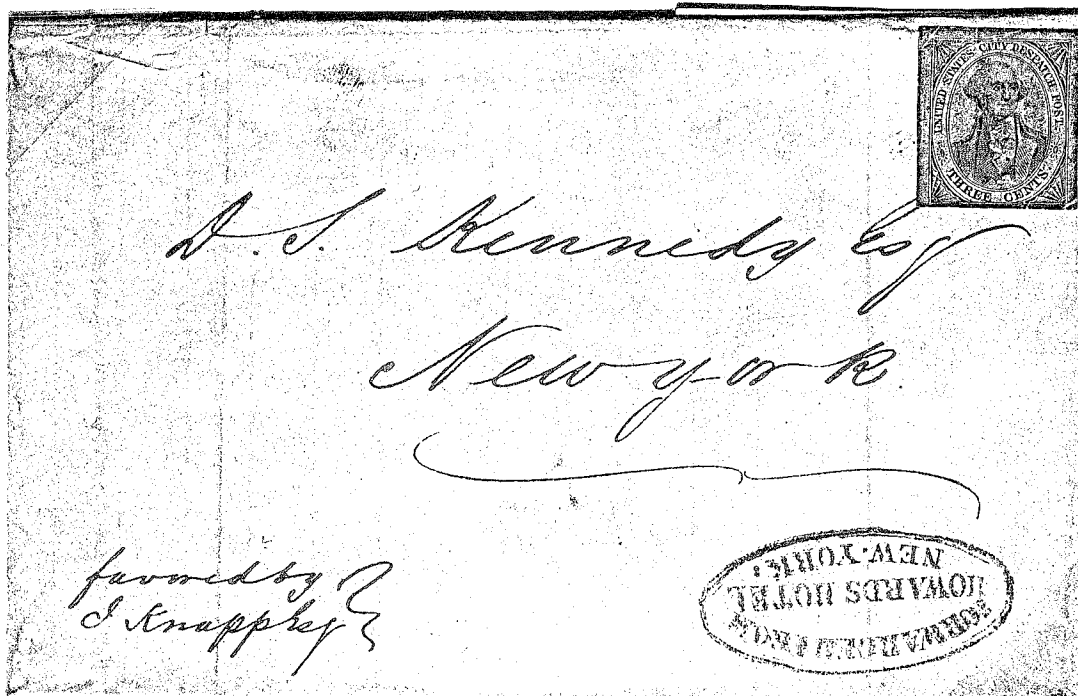 UNITED STATES CITY DESPATCH POST.
THREE CENTS.
D. S. Kennedy Esq
New york
favored by
J Knapp Esq
FORWARDED FROM
HOWARDS HOTEL
NEW-YORK: